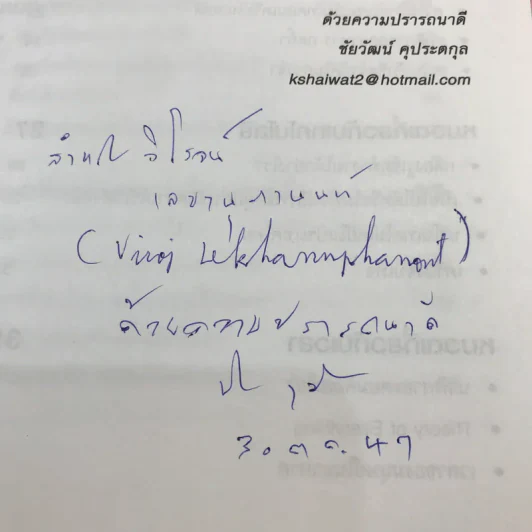 ด้วยความปรารถนาดี
ชัยวัฒน์ คุประตกุล
kshaiwat2@hotmail.com
สำหรับ วิโรจน์
เลขานุภานนท์
(Viroj Lekhanuphanont)
ด้วยความปรารถนาดี
30 ต.ค. 47